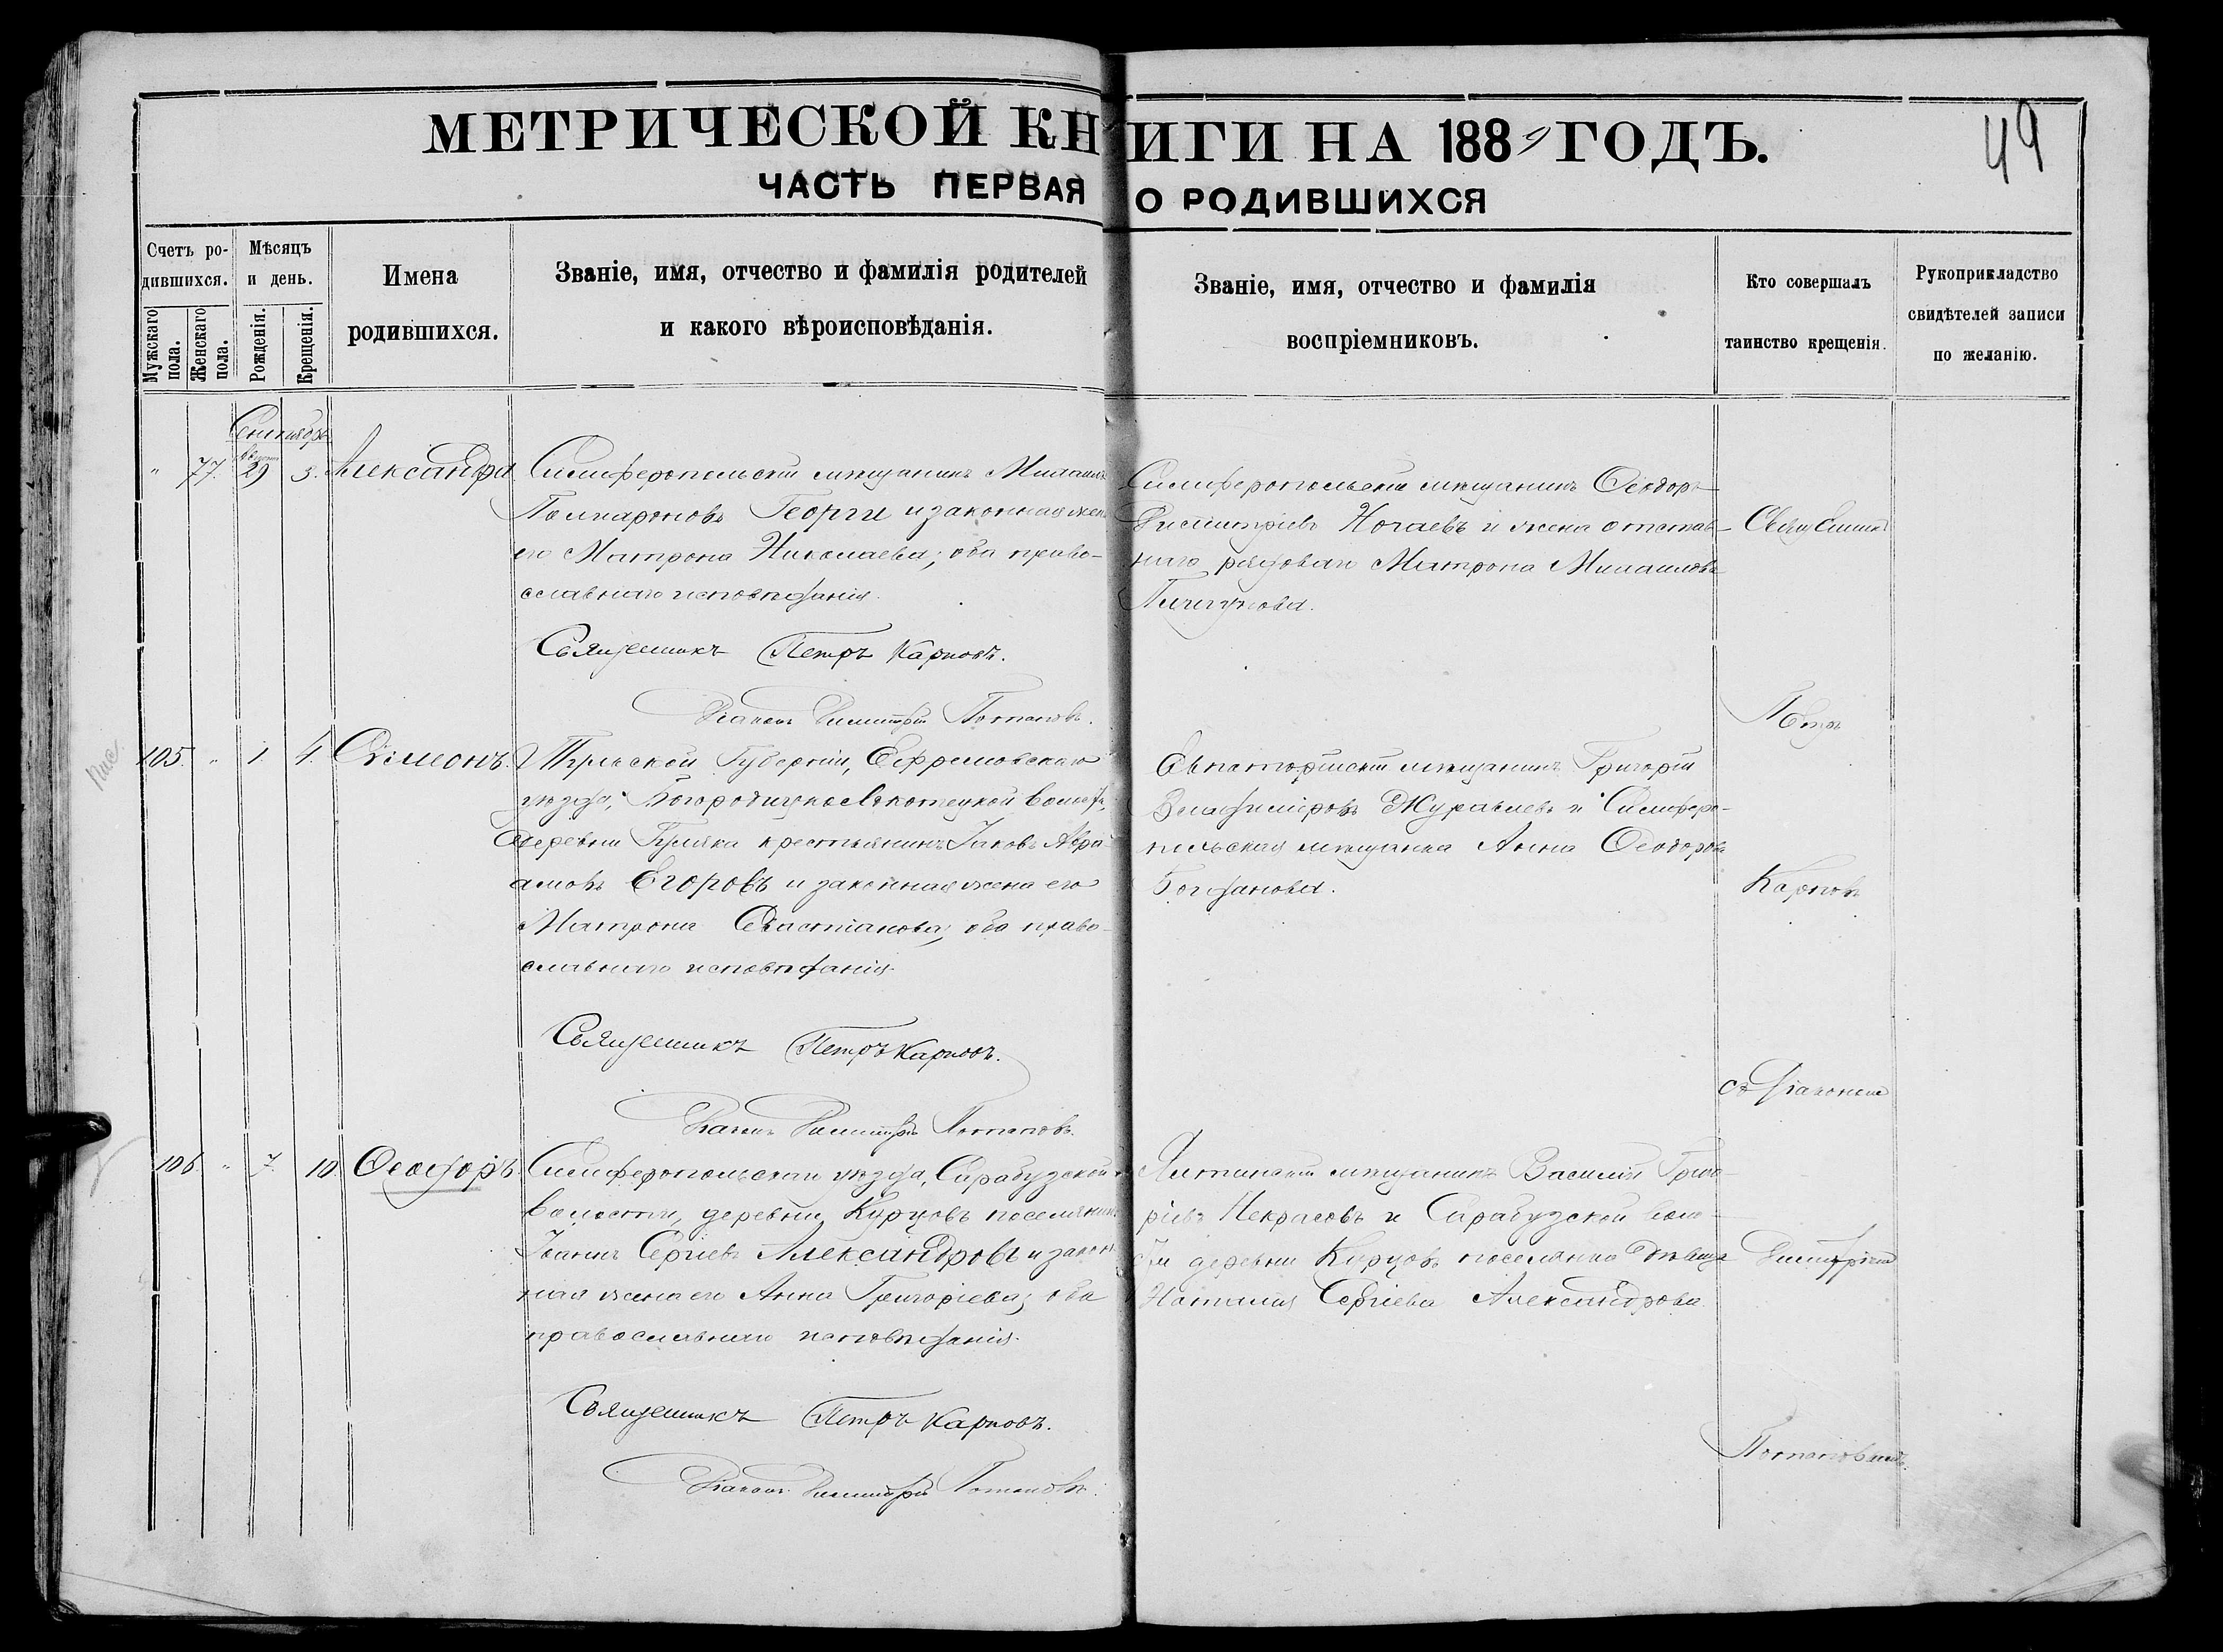 МЕТРИЧЕСКОЙ КНИГИ НА 1889 ГОДЪ.
49
ЧАСТЬ ПЕРВАЯ О РОДИВШИХСЯ
Счетъ родившихся.
Мужскаго пола.
Женскаго пола.
Мѣсяцъ и день.
Рожденія.
Крещенія.
Имена
родившихся.
Званіе, имя, отчество и фамилія родителей
и какого вѣроисповѣданія.
Званіе, имя, отчество и фамилія
воспріемниковъ.
Кто совершалъ
таинство крещенія.
Рукоприкладство
свидѣтелей записи
по желанію.
Сентябрь
Августа
" 77. 29 3. Александра
Симферопольскій мѣщанинъ Михаилъ
Георги и законная жена
его Матрона Николаева; оба право-
славнаго исповѣданія.
Священникъ Петръ Карповъ.
Діаконъ Димитрій Потаповъ.
Симферопольскій мѣщанинъ Ѳеодоръ
Димитріевъ Ногаевъ и жена отстав-
наго рядоваго Матрона Михаилова
105. " 1. 4. Симеонъ.
Тульской Губерніи, Ефремовскаго
уѣзда, волости,
деревни крестьянинъ Іаковъ Авра-
амовъ Егоровъ и законная жена его
Матрона Севастіанова; оба право-
славнаго исповѣданія.
Священникъ Петръ Карповъ.
Діаконъ Димитрій Потаповъ.
Евпаторійскій мѣщанинъ Григорій
Владиміровъ Журавлевъ и Симферо-
польская мѣщанка Анна Ѳеодорова
Богданова.
106. " 7. 10. Ѳеодоръ.
Симферопольскаго уѣзда, Сарабузской
волости, деревни Курцовъ поселянинъ
Іоаннъ Сергіевъ Александровъ и закон-
ная жена его Анна Григоріева; оба
православнаго исповѣданія.
Священникъ Петръ Карповъ.
Діаконъ Димитрій Потаповъ.
Ялтинскій мѣщанинъ Василій Григо-
ріевъ Некрасовъ и Сарабузской воло-
сти деревни Курцовъ поселянка дѣвица
Наталія Сергіева Александрова.
Священникъ
Петръ
Карповъ
съ діакономъ
Димитріемъ
Потаповымъ.